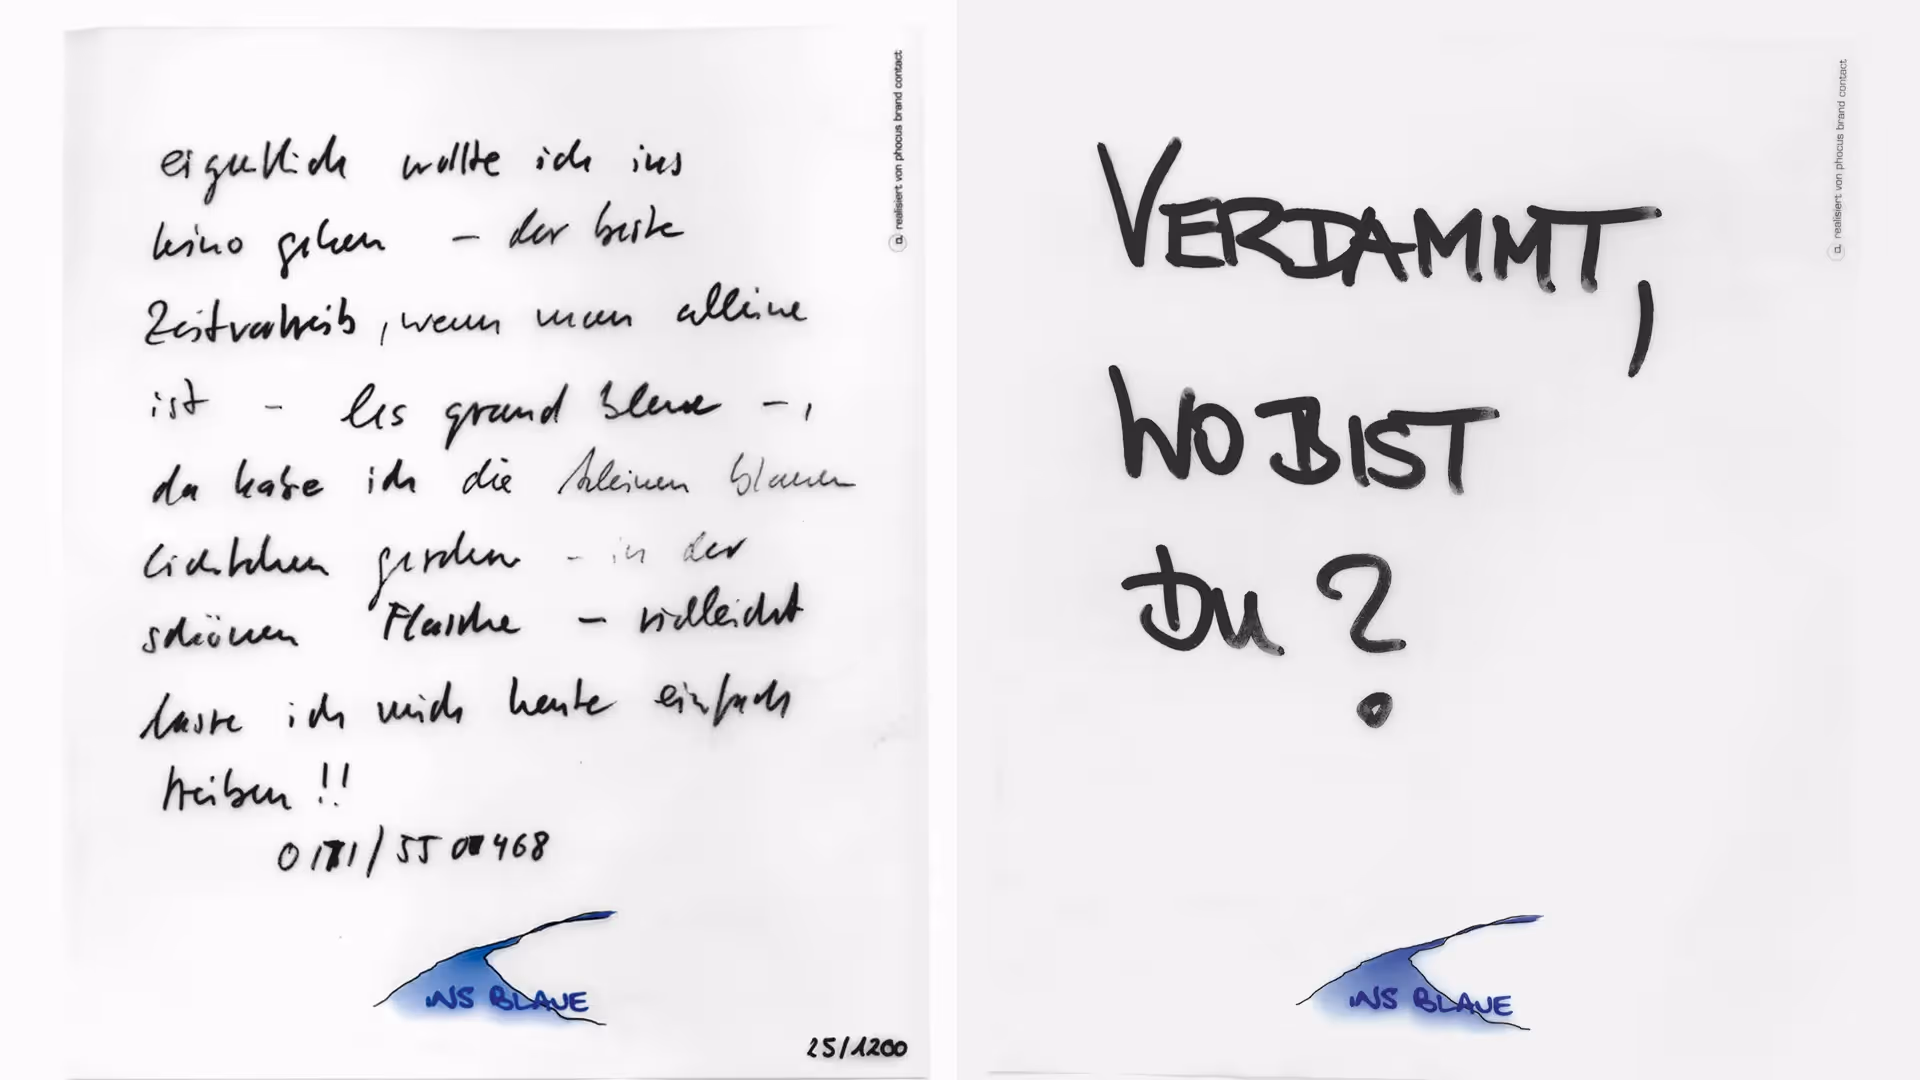 eigentlich wollte ich ins
kino gehen – der beste
Zeitvertreib, wenn man alleine
ist – les grand bleue –,
da habe ich die kleinen blauen
Lichtchen gesehen – in der
schönen Flasche – vielleicht
lasse ich mich heute einfach
treiben!!
0171/55 468
INS BLAUE
25/1200
realisiert von phocus brand contact
VERDAMMT,
WO BIST
DU?
INS BLAUE
realisiert von phocus brand contact